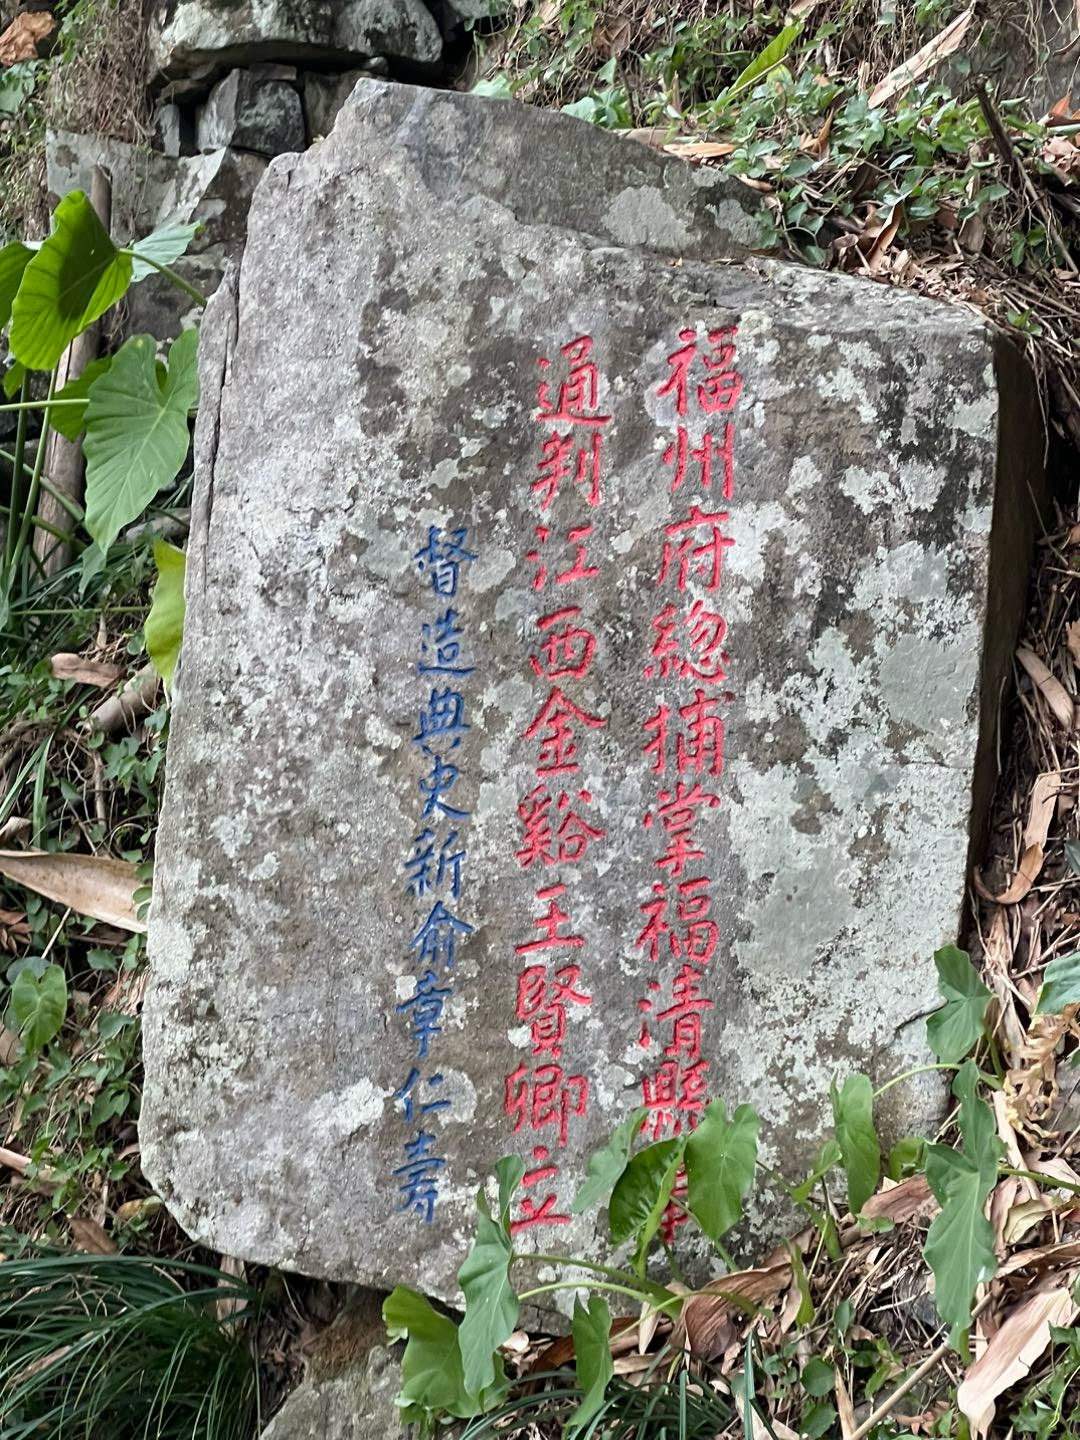 福州府總捕掌福清縣事
通判江西金谿王賢卿立
督造典史新俞章仁壽